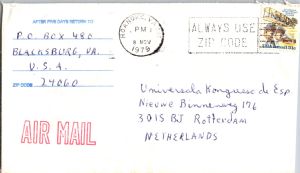 AFTER FIVE DAYS RETURN TO
P.O. BOX 480
BLACKSBURG, VA.
U.S.A.
ZIP CODE 24060
ROANOKE, VA
PM
8 NOV
1979
ALWAYS USE
ZIP CODE
AIR MAIL
Universala Kongreso de Esp.
Nieuwe Binnenweg 176
3015 BJ Rotterdam
NETHERLANDS